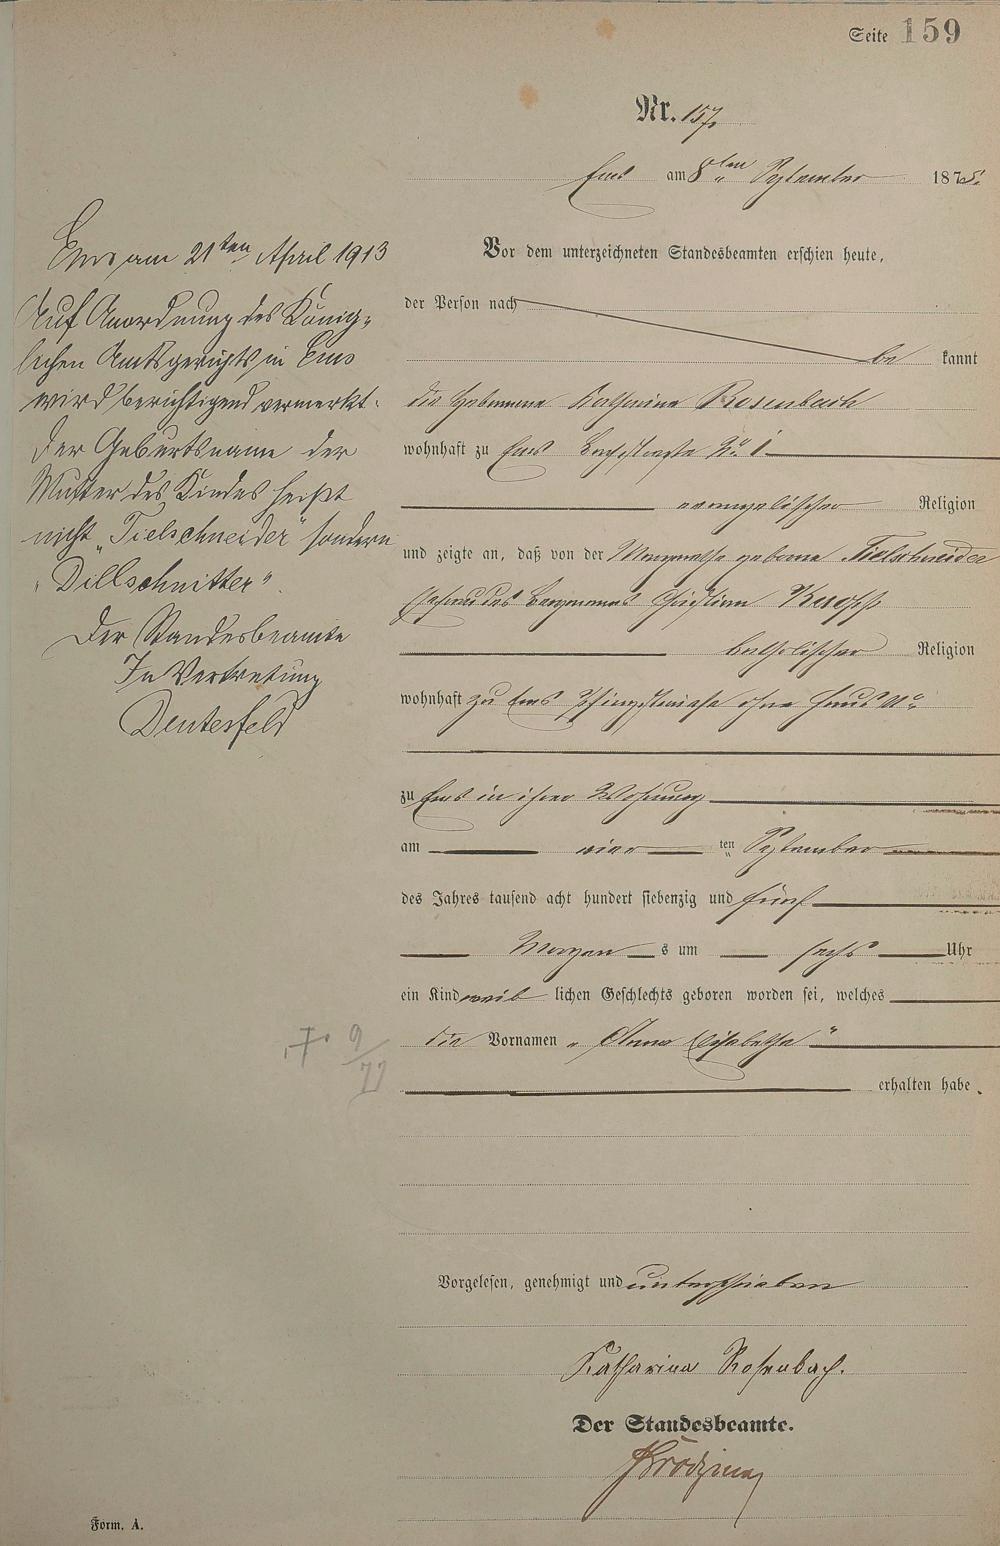 Seite 159
Nr. 157.
Ems am 8ten September 1875.
Ems am 21ten April 1913
Auf Anordnung des König-
lichen Amtsgerichts in Ems
wird berichtigend vermerkt:
Der Geburtsname der
Mutter des Kindes heißt
nicht „Tielschneider" sondern
„Dillschnitter".
Der Standesbeamte
In Vertretung
Deuterfeld
Vor dem unterzeichneten Standesbeamten erschien heute,
der Person nach
be kannt
die Hebamme Katharina Rosenbach
wohnhaft zu Ems Bachstraße No 1
evangelischer Religion
und zeigte an, daß von der Margaretha geborne Tielschneider
Ehefrau des Bergmanns Christian
katholischer Religion
wohnhaft zu Ems Pfingstwiese ohne Haus No
zu Ems in ihrer Wohnung
am vier ten September
des Jahres tausend acht hundert siebenzig und fünf
Morgen s um sechs Uhr
ein Kind weib lichen Geschlechts geboren worden sei, welches
die Vornamen „Anna Elisabetha"
erhalten habe.
†. 9/77
Vorgelesen, genehmigt und unterschrieben
Katharina Rosenbach.
Der Standesbeamte.
Form. A.